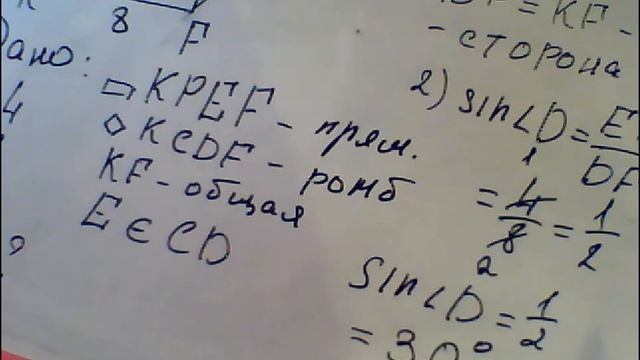 8
F
Дано:
▭ KPEF - прям.
◇ KCDF - ромб
KF - общая
E ∈ CD
4
= KF -
- сторона
2) sin∠D = E/DF
= 4/8 = 1/2
1
2
Sin∠D = 1/2
= 30°